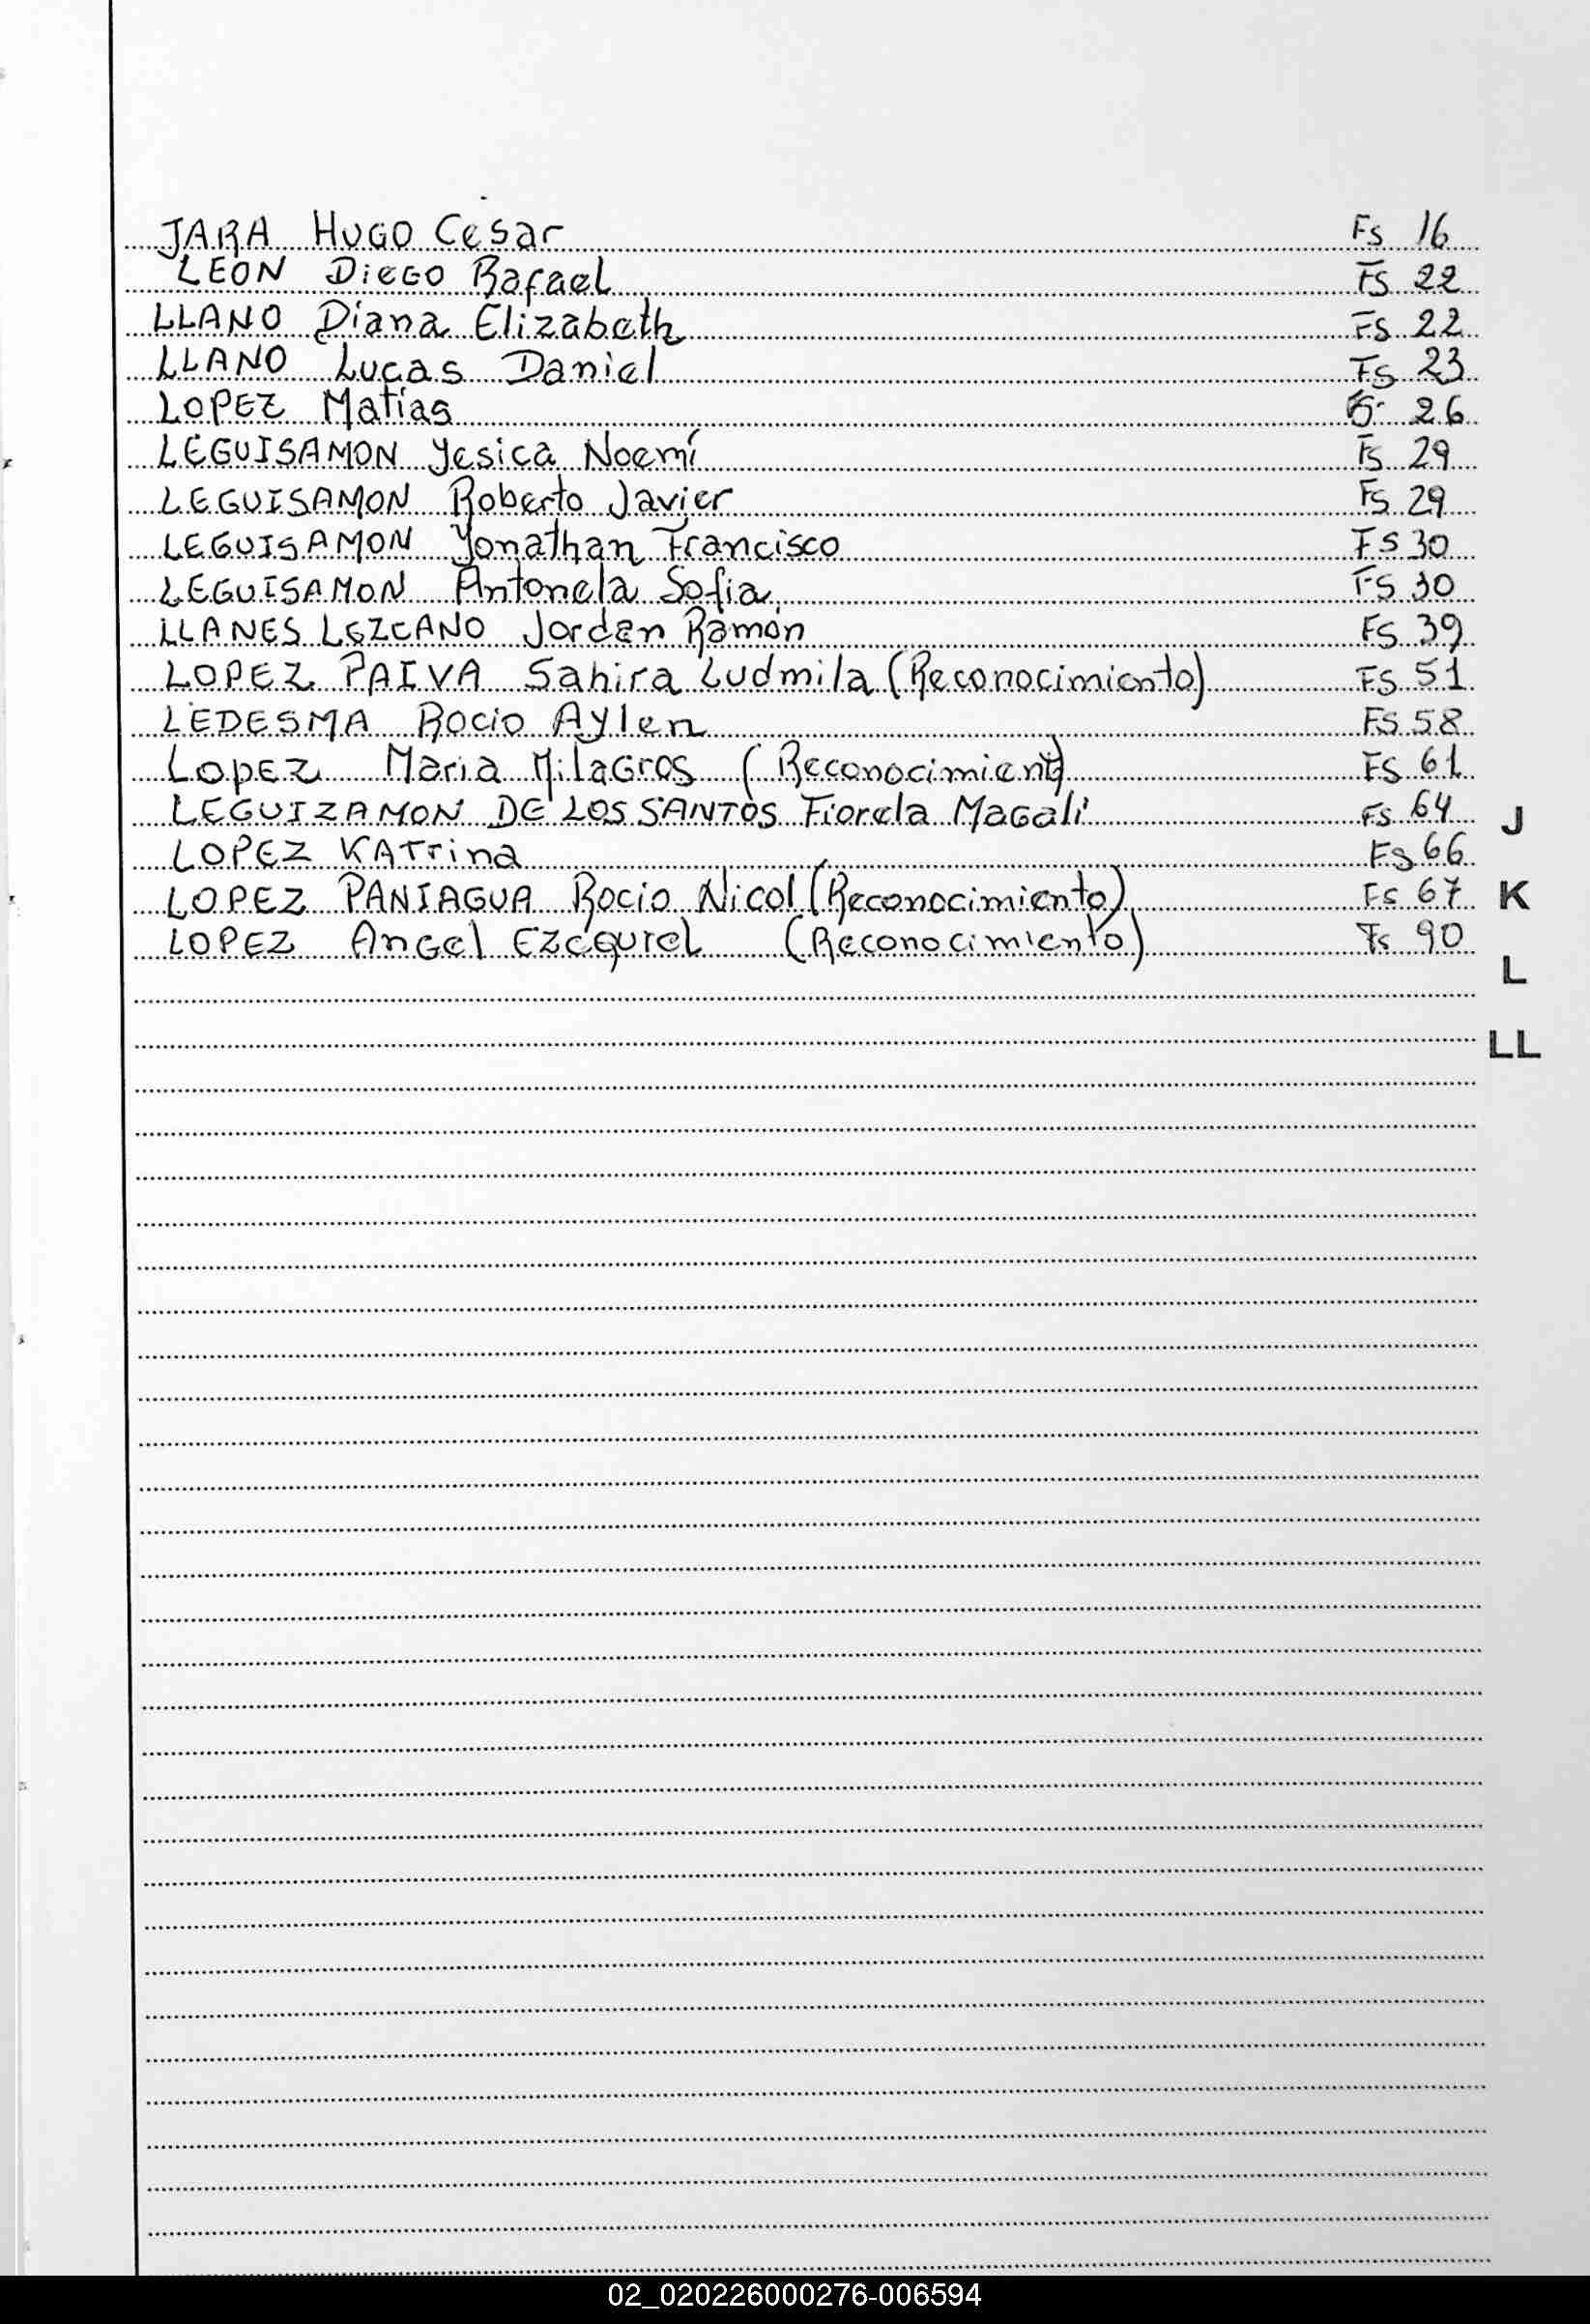 JARA HUGO Cesar Fs 16
LEON DiEGO Rafael Fs 22
LLANO Diana Elizabeth Fs 22
LLANO Lucas Daniel Fs 23
LOPEZ Matías Fs 26
LEGUISAMON Yesica Noemí Fs 29
LEGUISAMON Roberto Javier Fs 29
LEGUISAMON Yonathan Francisco Fs 30
LEGUISAMON Antonela Sofia Fs 30
LLANES LEZCANO Jordan Ramón Fs 39
LOPEZ PAIVA Sahira Ludmila (Reconocimiento) Fs 51
LEDESMA Rocio Aylen FS 58
Lopez Maria MilaGros (Reconocimiento) Fs 61
LEGUIZAMON DE LOS SANTOS Fiorela MaGali Fs 64
J
LOPEZ KATrina Fs 66
LOPEZ PANIAGUA Rocio Nicol (Reconocimiento) Fs 67
K
LOPEZ AnGel Ezequiel (Reconocimiento) Fs 90
L
LL
02_020226000276-006594